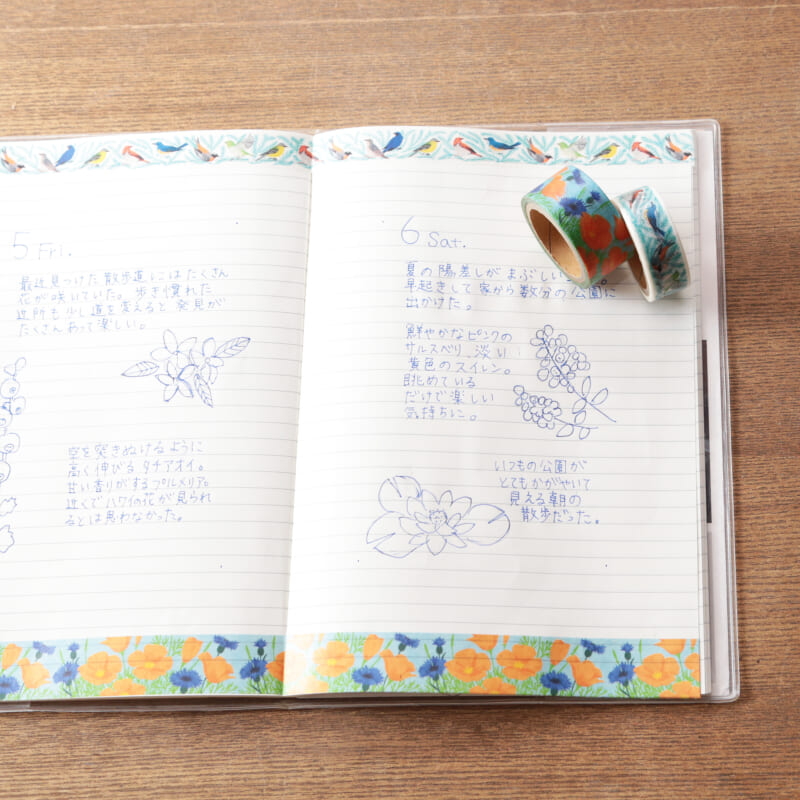 5 Fri.
最近見つけた散歩道にはたくさん
花が咲いていた。歩き慣れた
近所も少し道を変えると発見が
たくさんあって楽しい。
空を突きぬけるように
高く伸びるタチアオイ。
甘い香りがするプルメリア。
近くでハワイの花が見られ
るとは思わなかった。
6 Sat.
夏の陽差しがまぶしい
早起きして家から数分の公園に
出かけた。
鮮やかなピンクの
サルスベリ、淡い
黄色のスイレン。
眺めている
だけで楽しい
気持ちに。
いつもの公園が
とてもかがやいて
見える朝の
散歩だった。